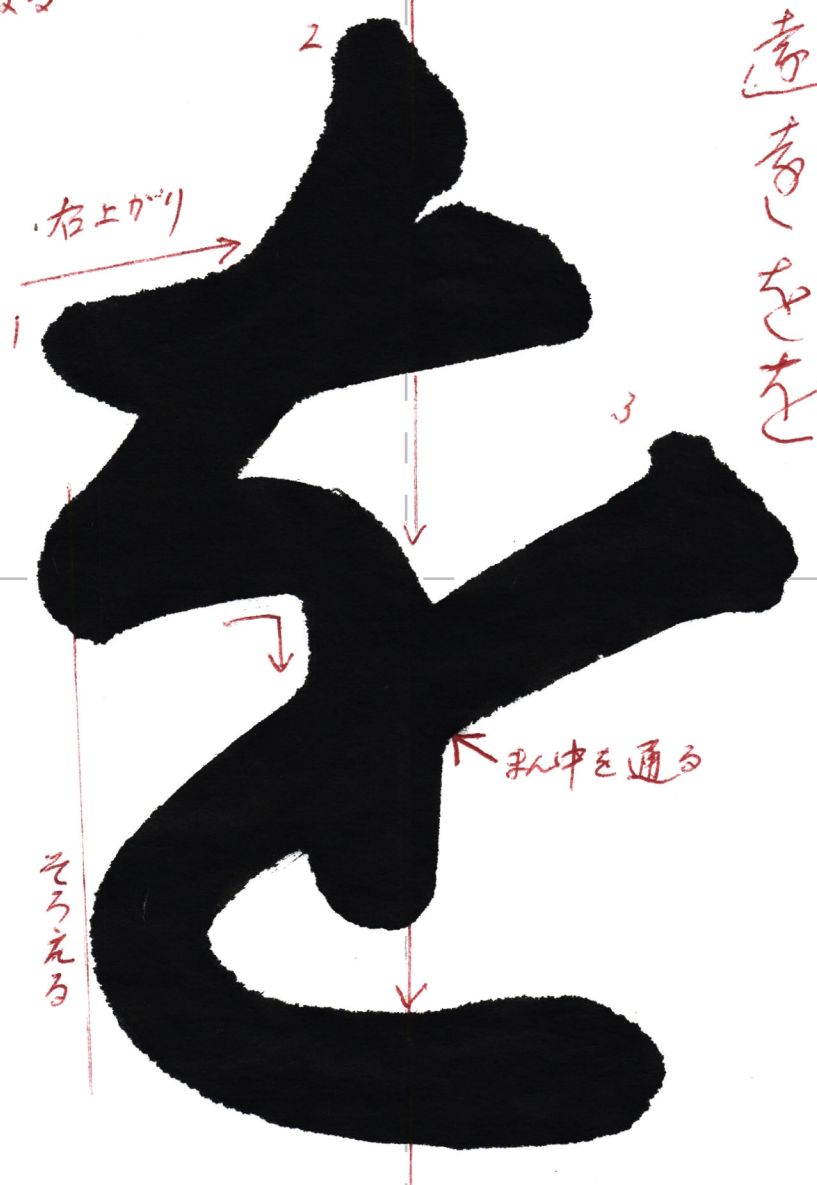 遠遠をを
を
2
右上がり
1
3
まん中を通る
そろえる